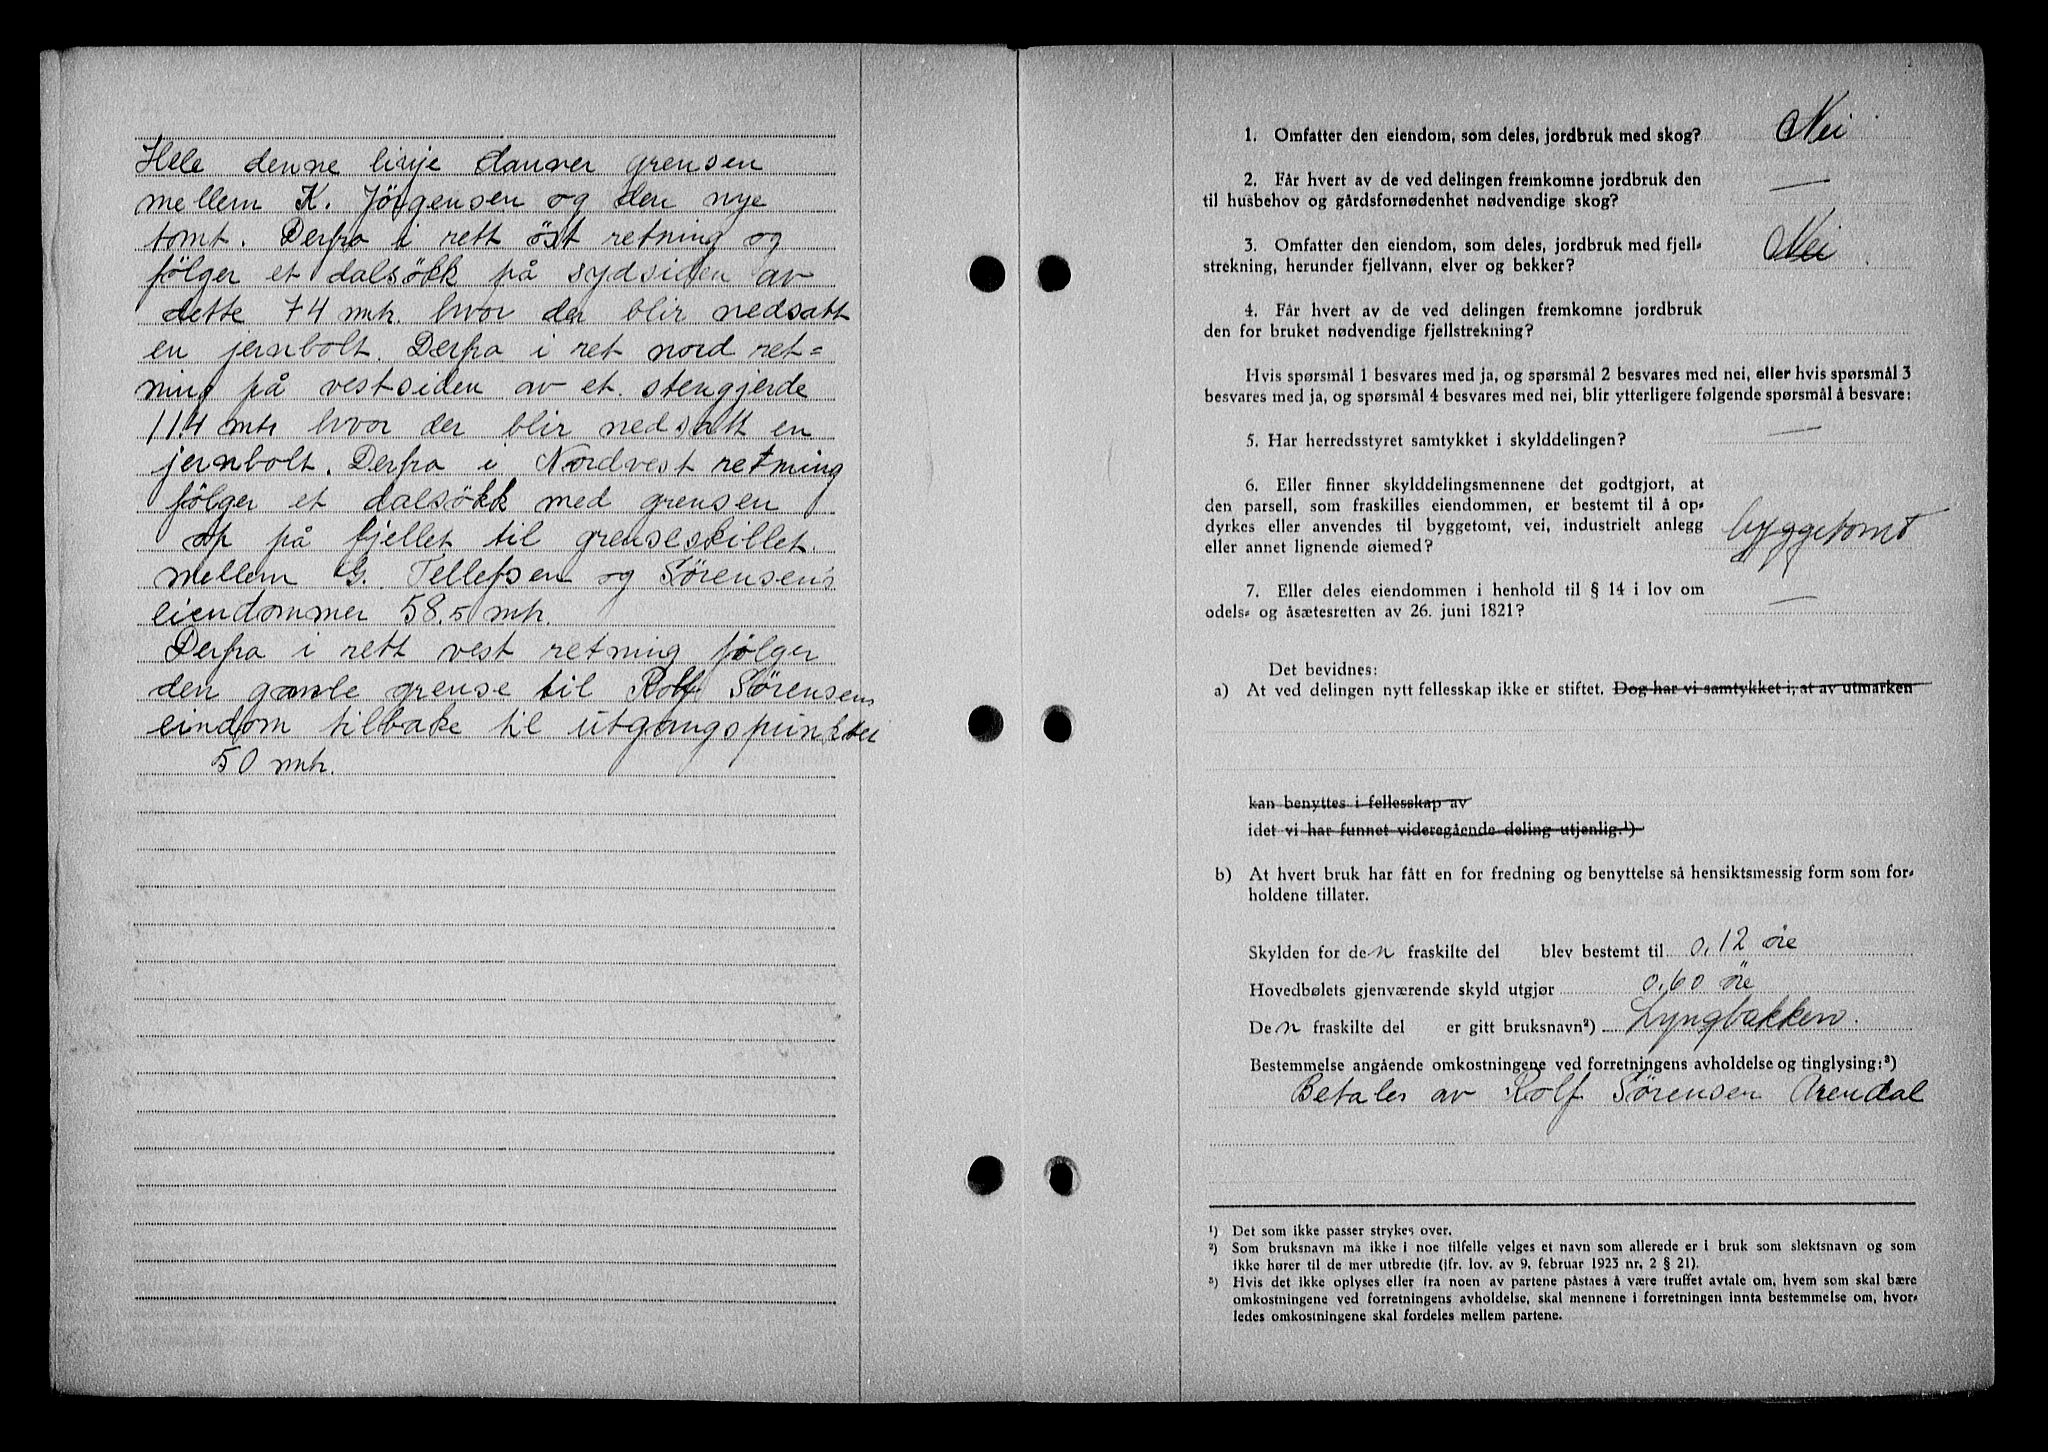 Hele denne linje danner grensen
mellem K. Jörgensen og den nye
tomt. Derfra i rett öst retning og
fölger et dalsökk på sydsiden av
dette 74 mtr. hvor der blir nedsatt
en jernbolt. Derfra i ret nord ret=
ning på vestsiden av et stengjerde
114 mtr hvor der blir nedsatt en
jernbolt. Derfra i Nordvest retning
fölger et dalsökk med grensen
op på fjellet til grenseskillet
mellem G. Tellefsen og Sörensens
eiendommer 58,5 mtr.
Derfra i rett vest retning fölger
den gamle grense til Rolf Sörensens
eindom tilbake til utgangspunktet
50 mtr.
1. Omfatter den eiendom, som deles, jordbruk med skog? Nei
2. Får hvert av de ved delingen fremkomne jordbruk den
til husbehov og gårdsfornødenhet nødvendige skog? —
3. Omfatter den eiendom, som deles, jordbruk med fjell-
strekning, herunder fjellvann, elver og bekker? Nei
4. Får hvert av de ved delingen fremkomne jordbruk
den for bruket nødvendige fjellstrekning?
Hvis spørsmål 1 besvares med ja, og spørsmål 2 besvares med nei, eller hvis spørsmål 3
besvares med ja, og spørsmål 4 besvares med nei, blir ytterligere følgende spørsmål å besvare:
5. Har herredsstyret samtykket i skylddelingen? —
6. Eller finner skylddelingsmennene det godtgjort, at
den parsell, som fraskilles eiendommen, er bestemt til å op-
dyrkes eller anvendes til byggetomt, vei, industrielt anlegg
eller annet lignende øiemed? byggetomt
7. Eller deles eiendommen i henhold til § 14 i lov om
odels- og åsætesretten av 26. juni 1821? —
Det bevidnes:
a) At ved delingen nytt fellesskap ikke er stiftet. Dog har vi samtykket i, at av utmarken
kan benyttes i fellesskap av
idet vi har funnet videregående deling utjenlig.¹)
b) At hvert bruk har fått en for fredning og benyttelse så hensiktsmessig form som for-
holdene tillater.
Skylden for den fraskilte del blev bestemt til 0,12 øre
Hovedbølets gjenværende skyld utgjør 0,60 öre
Den fraskilte del er gitt bruksnavn²) Lyngbakken.
Bestemmelse angående omkostningene ved forretningens avholdelse og tinglysing:³)
Betales av Rolf Sörensen Arendal
¹) Det som ikke passer strykes over.
²) Som bruksnavn må ikke i noe tilfelle velges et navn som allerede er i bruk som slektsnavn og som
ikke hører til de mer utbredte (jfr. lov. av 9. februar 1923 nr. 2 § 21).
³) Hvis det ikke oplyses eller fra noen av partene påstaes å være truffet avtale om, hvem som skal bære
omkostningene ved forretningens avholdelse, skal mennene i forretningen innta bestemmelse om, hvor-
ledes omkostningene skal fordeles mellem partene.